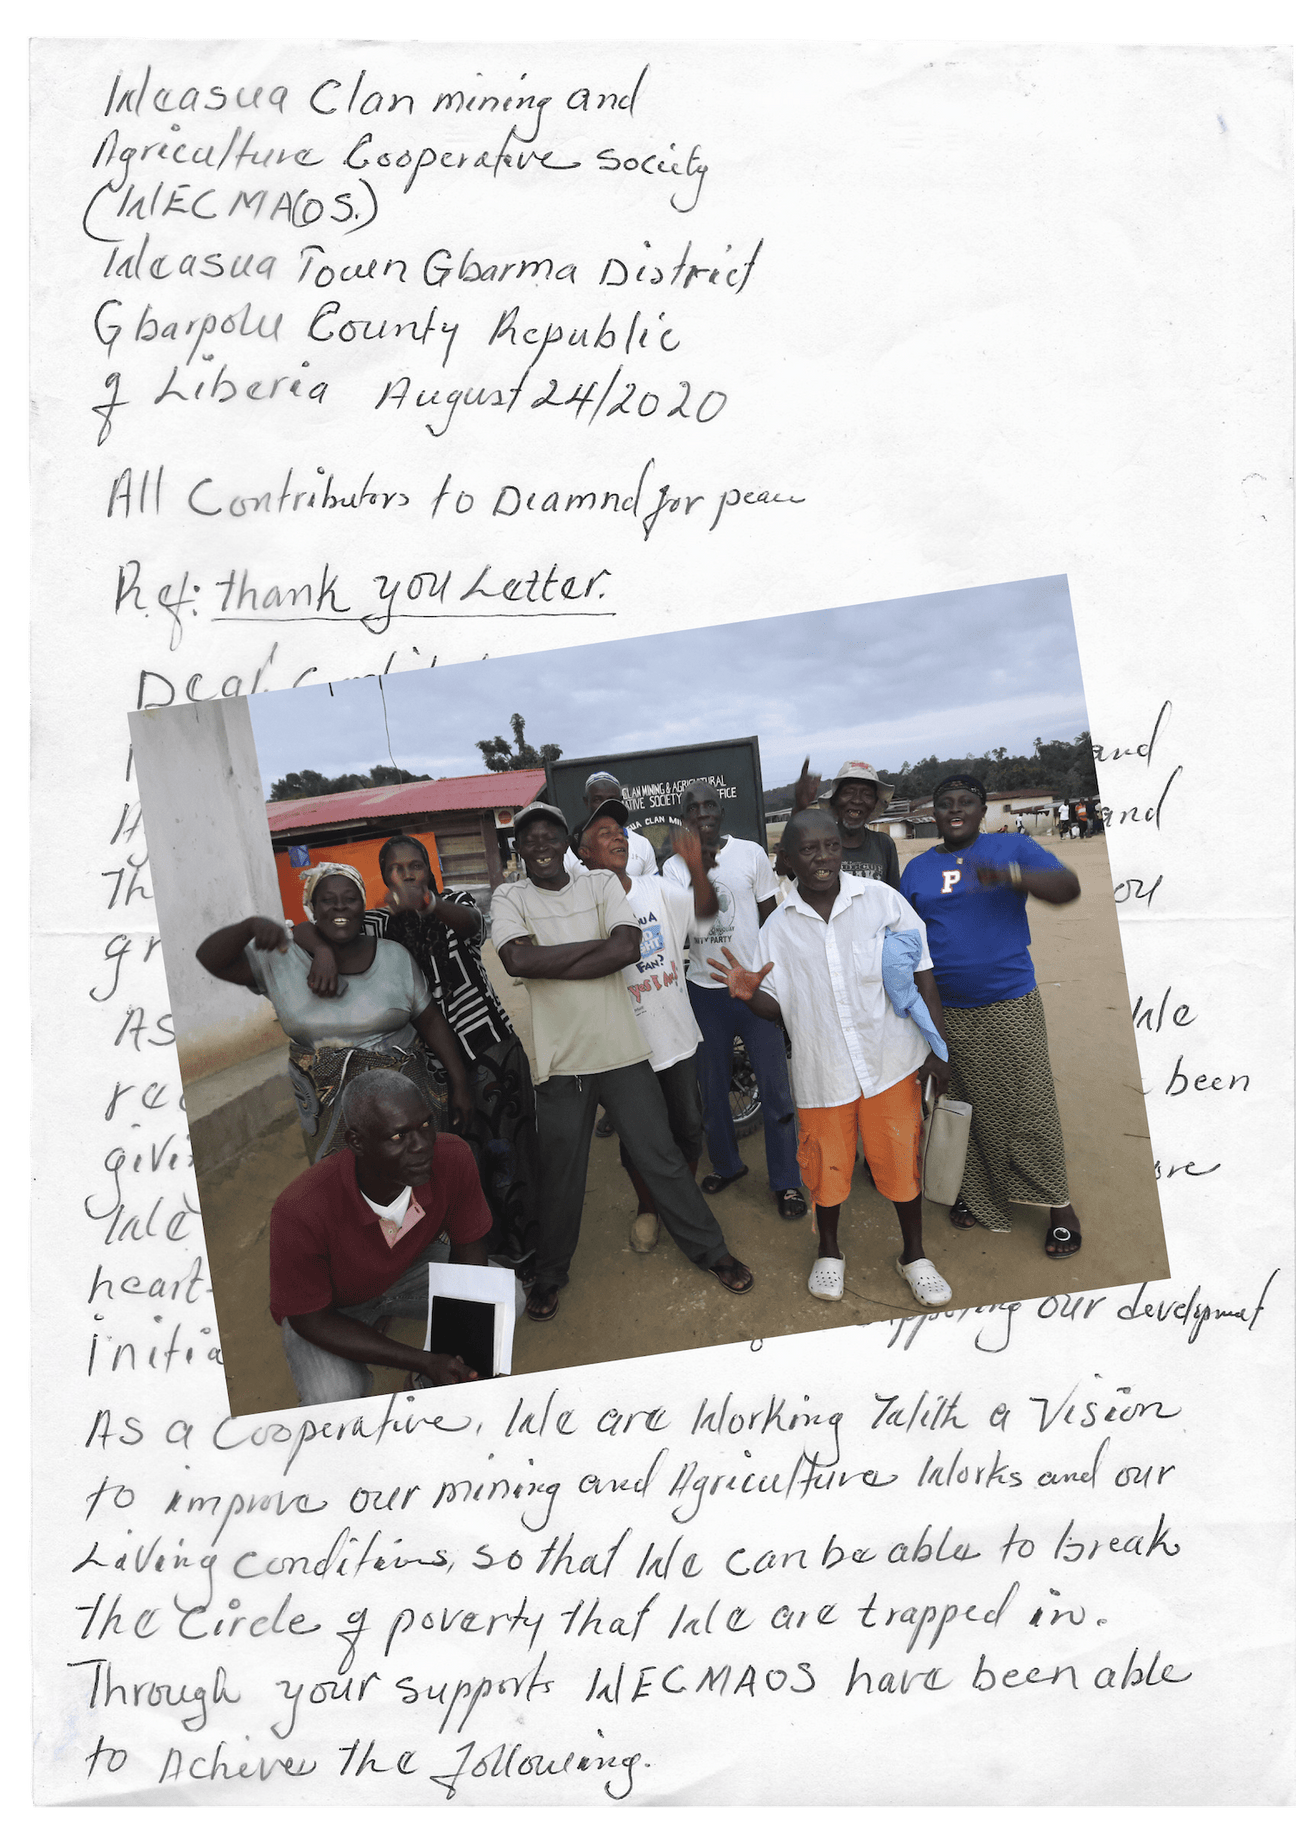 Weasua Clan mining and
Agriculture Cooperative society
(WECMACOS.)
Weasua Town Gbarma District
Gbarpolu County Republic
of Liberia August 24/2020
All Contributors to Diamnd for peace
Ref: thank you Letter.
Dear
and
and
Th
ou
gr
As We
rec been
givi ore
We
heart-
initia our development
CLAN MINING & AGRICULTURAL
ATIVE SOCIETY OFFICE
UA CLAN MI
P
PARTY
FAN?
Yes I Am!
As a Cooperative, We are Working With a Vision
to improve our mining and Agriculture Works and our
Living conditions, so that We can be able to break
the Circle of poverty that We are trapped in.
Through your supports WECMAOS have been able
to Achieve the following.